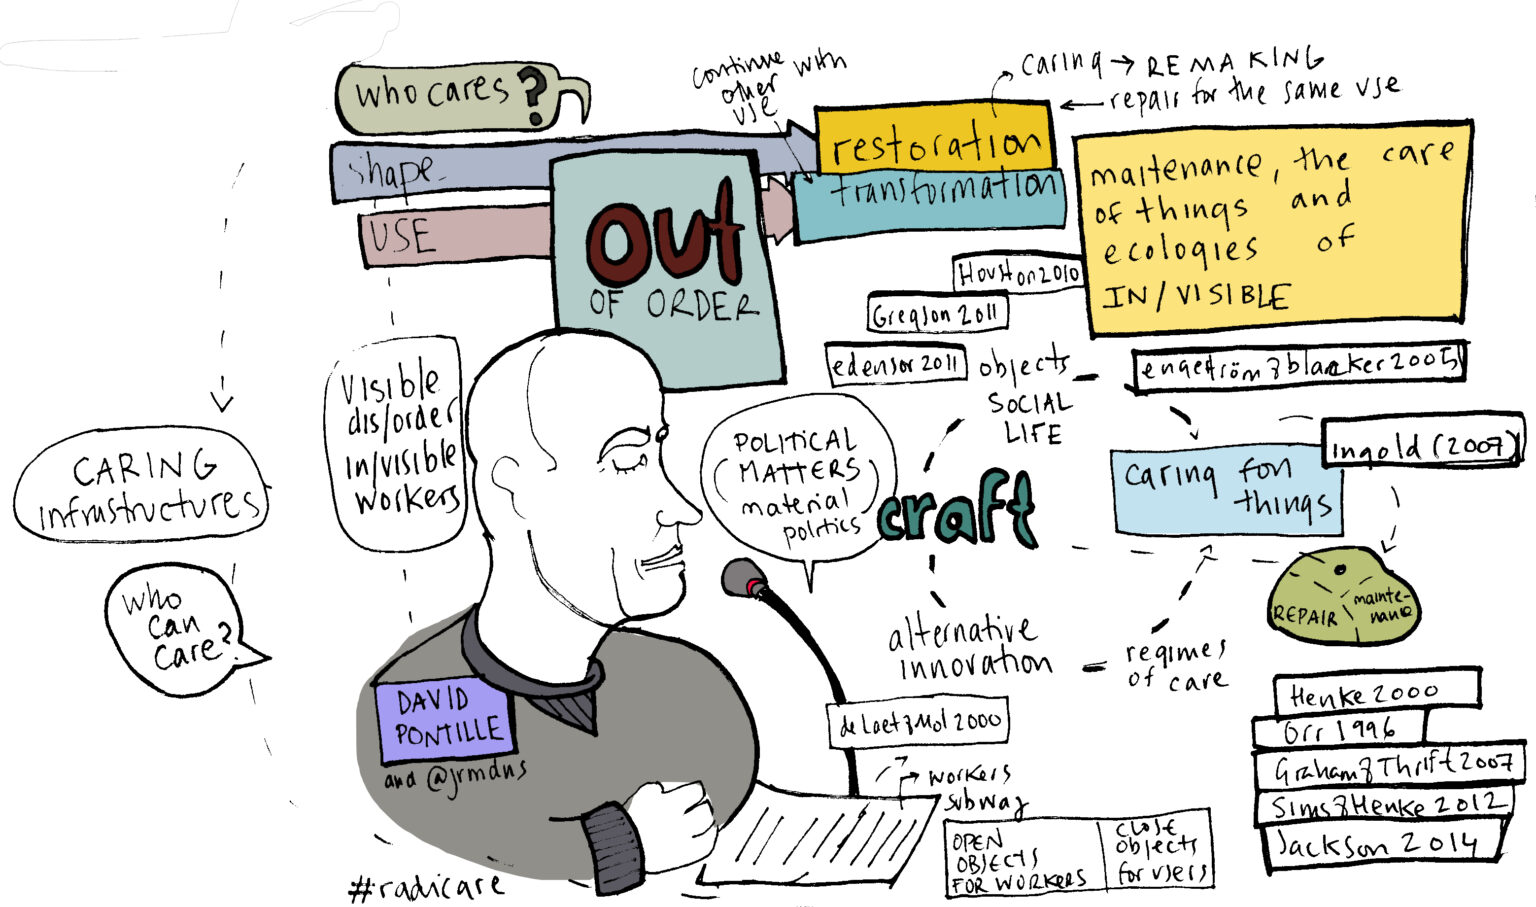 who cares?
continue with
other
use
caring → REMAKING
repair for the same use
shape
USE
restoration
transformation
OUT
OF ORDER
maitenance, the care
of things and
ecologies of
IN/VISIBLE
Houston 2010
Gregson 2011
edensor 2011
engeström & blancker 2005
Ingold (2007)
objects
SOCIAL
LIFE
Visible
dis/order
in/visible
workers
POLITICAL
MATTERS
material
politics
craft
caring for
things
CARING
infrastructures
who
can
care?
alternative
innovation
regimes
of care
REPAIR
mainte-
nance
DAVID
PONTILLE
and @jrmdns
de Laet & Mol 2000
workers
subway
OPEN
OBJECTS
FOR WORKERS
CLOSE
objects
for users
Henke 2000
Orr 1996
Graham & Thrift 2007
Sims & Henke 2012
Jackson 2014
#radicare